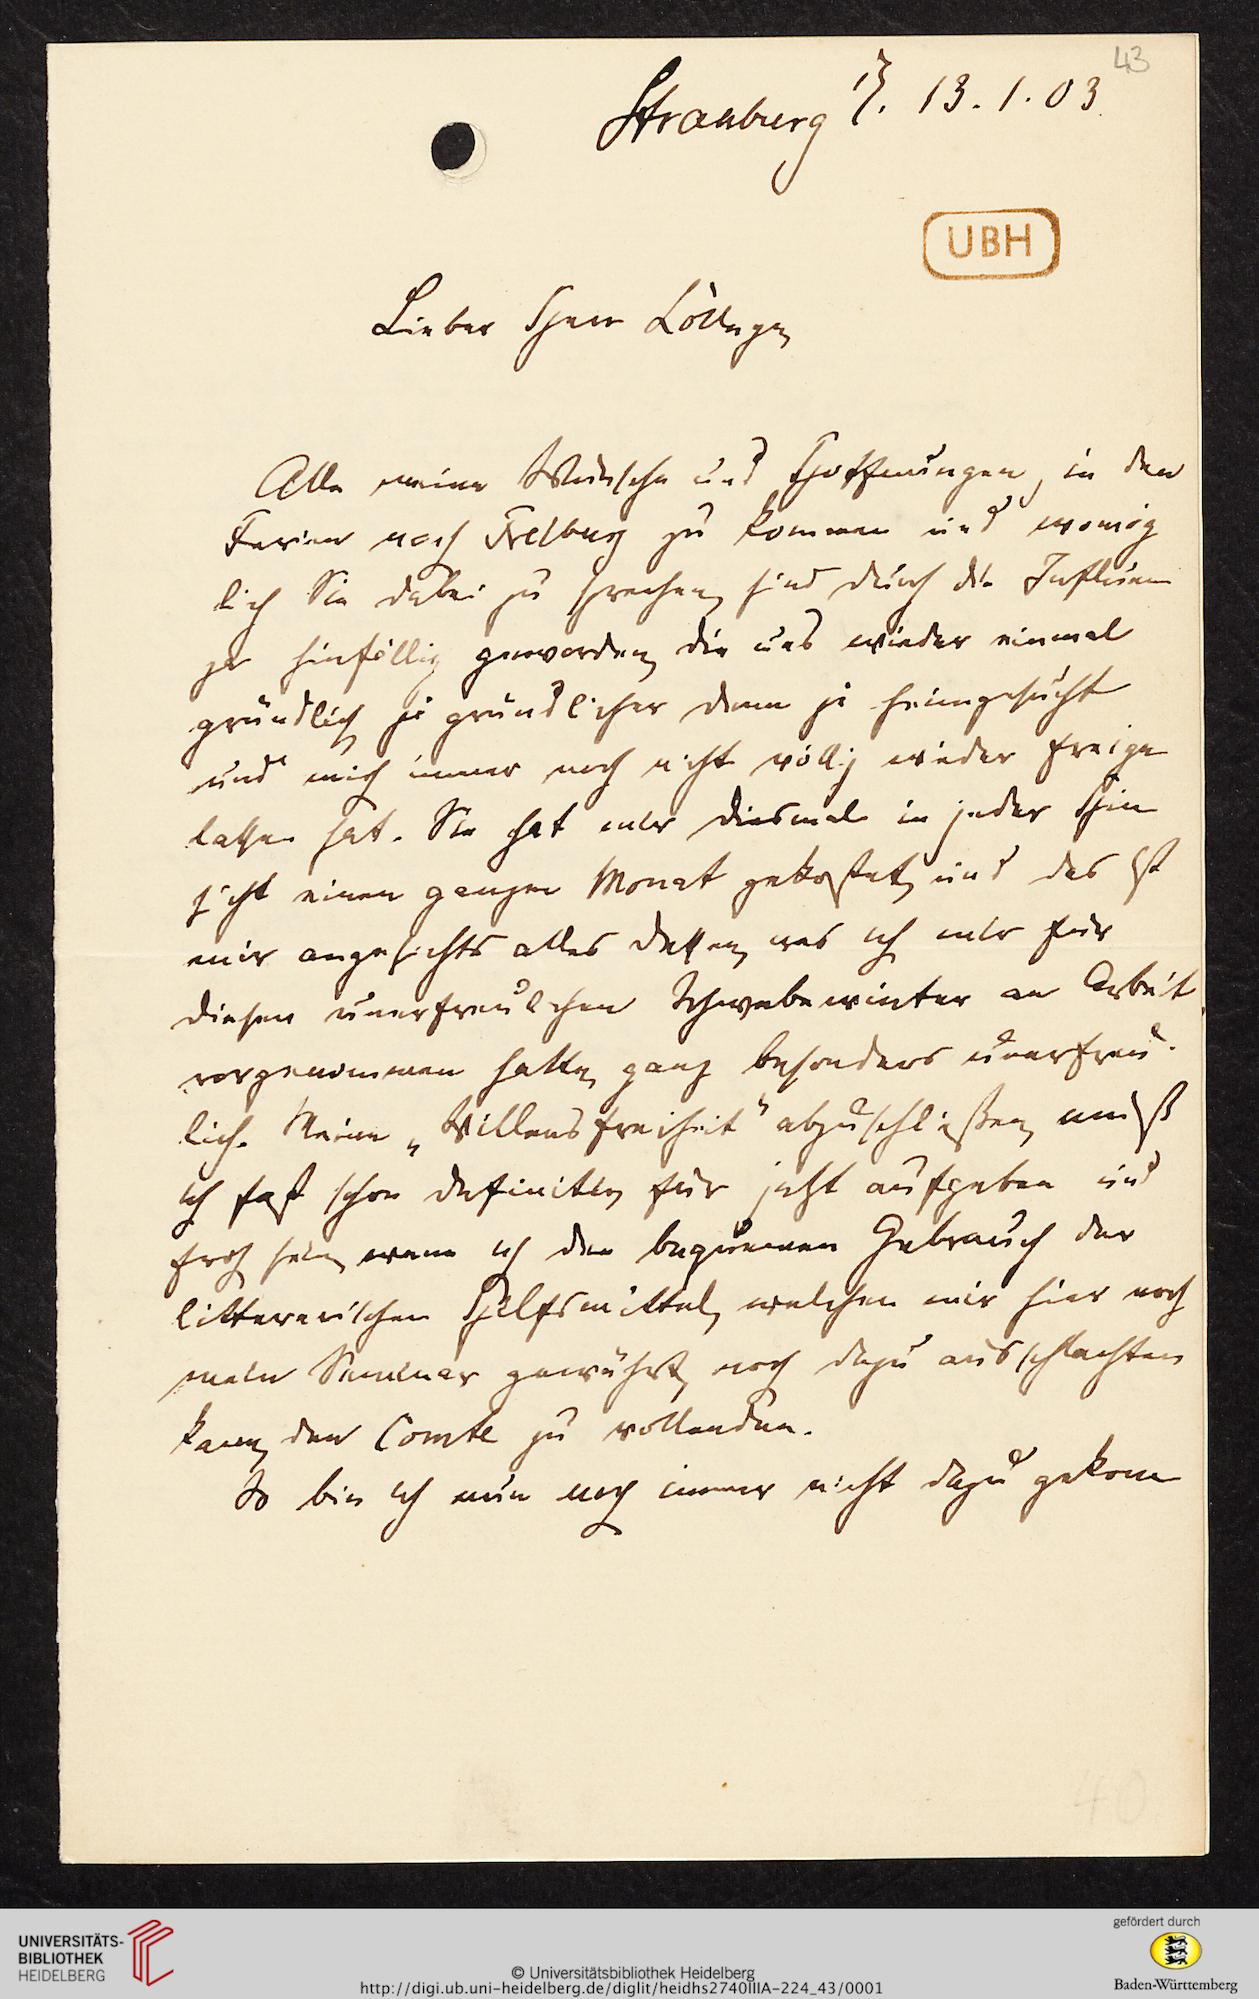 43
Strassburg i/E. 13.1.03.
UBH
Lieber Herr College,
Alle meine Wünsche und Hoffnungen, in den
Ferien nach Freiburg zu kommen und womög
lich Sie dabei zu sprechen, sind durch die Influen
za hinfällig geworden, die uns wieder einmal
gründlich, ja gründlicher denn je heimgesucht
und mich immer noch nicht völlig wieder freige
lassen hat. Sie hat mir diesmal in jeder Hin
sicht einen ganzen Monat gekostet, und das ist
mir angesichts alles dessen, was ich mir für
diesen unerfreulichen Schwabewinter an Arbeit
vorgenommen hatte, ganz besonders unerfreu-
lich. Meine „Willensfreiheit“ abzuschließen, muß
ich fast schon definitiv für jetzt aufgeben und
froh sein, wenn ich den bequemen Gebrauch der
litterarischen Hilfsmittel, welchen mir hier noch
mein Seminar gewährt, noch dazu ausschlachten
kann, den Comte zu vollenden.
So bin ich nun noch immer nicht dazu gekom
40
UNIVERSITÄTS-
BIBLIOTHEK
HEIDELBERG
© Universitätsbibliothek Heidelberg
http://digi.ub.uni-heidelberg.de/diglit/heidhs2740IIIA-224_43/0001
gefördert durch
Baden-Württemberg